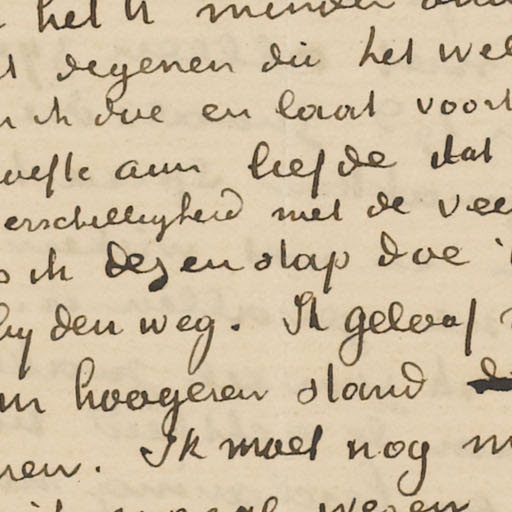 het ik minder
degenen die het wel
ik doe en laat voort
aan liefde dat
erschilligheid met de vee
ik dezen stap doe
by den weg. Ik geloof
hoogeren stand
nen. Ik moet nog m